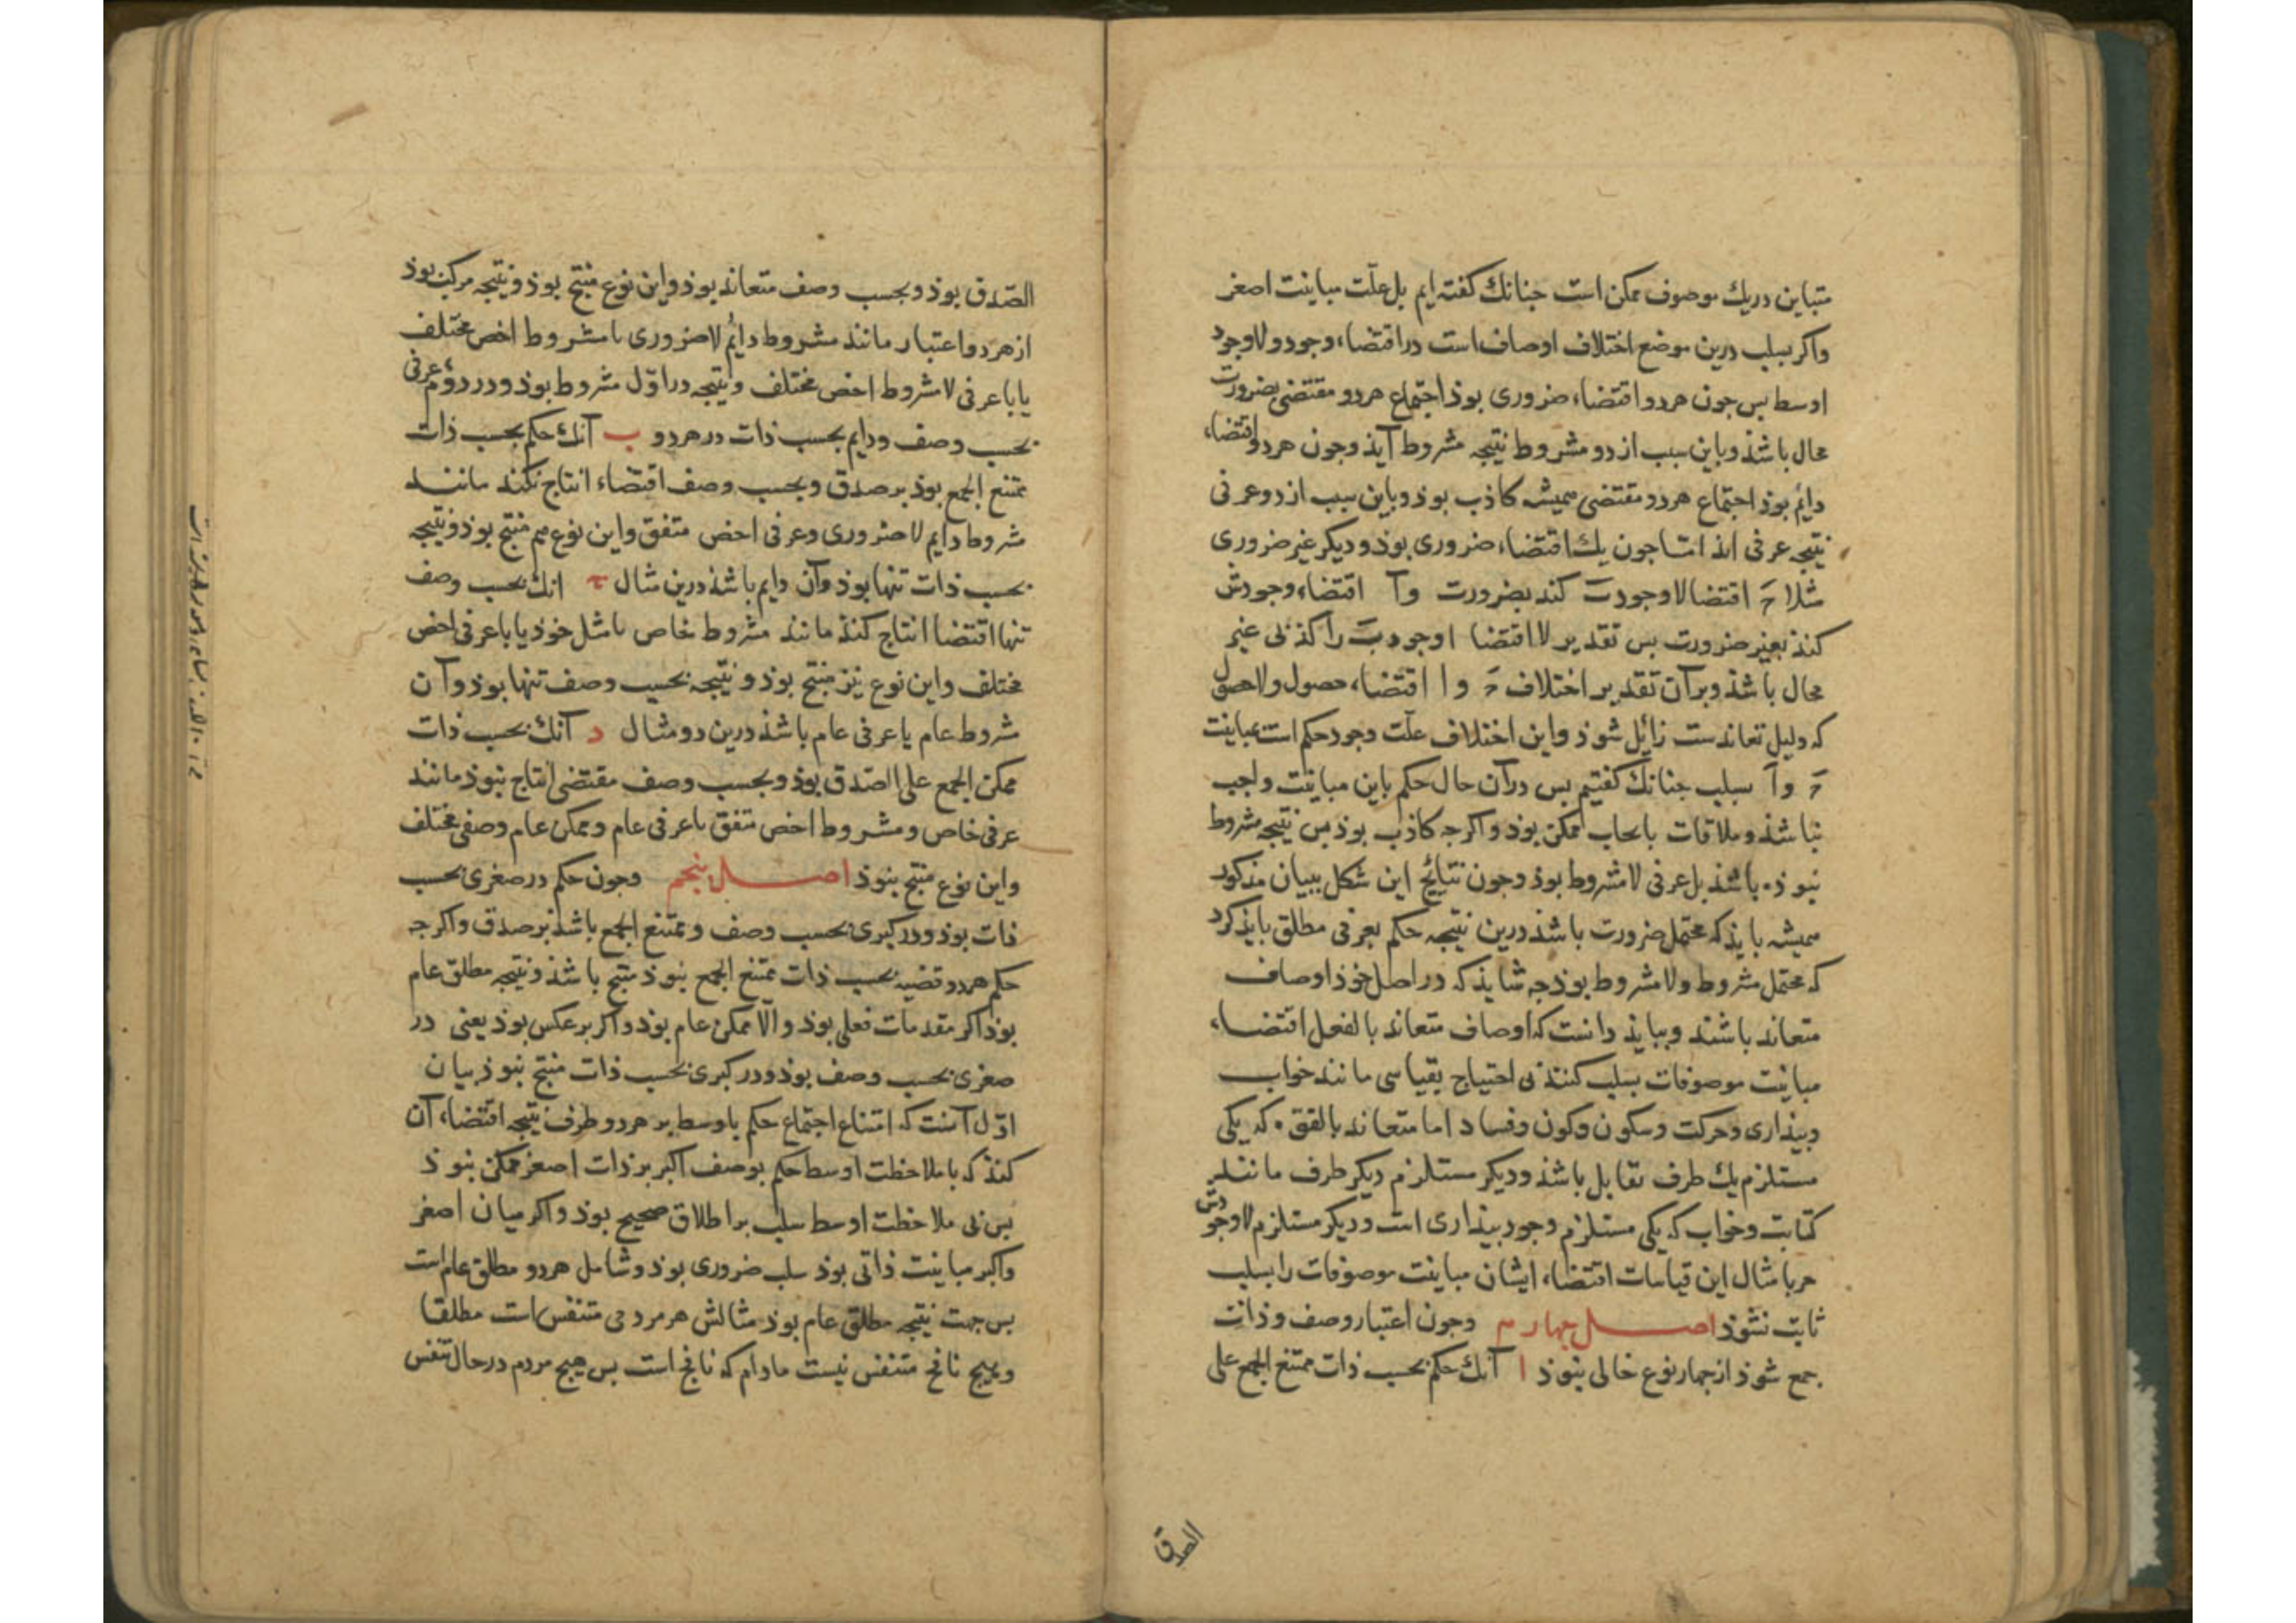 متباین دریك موصوف ممکن است جنانك کفته ایم بل علّت مباینت اصغر
واکبر بسلب درین موضع اختلاف اوصاف است در اقتضاء وجود ولاوجود
اوسط بس جون هردو اقتضاء ضروری بوذ اجتماع هردو مقتضی بضرورت
محال باشذ وباین سبب از دو مشروط نتیجه مشروط آیذ وجون هردو اقتضاء
دایم بوذ اجتماع هردو مقتضی همیشه کاذب بوذ وباین سبب از دو عرفی
نتیجه عرفی آیذ امّا جون یك اقتضاء ضروری بوذ ودیکر غیر ضروری
مثلا حَ اقتضا لاوجود بَ کند بضرورت واَ اقتضاء وجودش
کنذ بغیر ضرورت بس تقدیر لا اقتضا ا وجود بَ را کذبی غیر
محال باشذ وبرآن تقدیر اختلاف حَ وا اقتضاء حصول ولاحصول
که دلیل تعاندست زائل شوذ واین اختلاف علّت وجود حکم است بمباینت
حَ واَ بسلب جنانك کفتیم بس درآن حال حکم باین مباینت واجب
نباشذ وملاقات بایجاب ممکن بوذ واکرجه کاذب بوذ بس نتیجه مشروط
نبوذه باشذ بل عرفی لامشروط بوذ وجون نتایج این شکل ببیان مذکور
همیشه بایذ که محتمل ضرورت باشذ درین نتیجه حکم بعرفی مطلق بایذ کرد
که محتمل مشروط ولامشروط بوذ جه شایذ که در اصل خوذ اوصاف
متعاند باشند وببایذ دانست که اوصاف متعاند بالفعل اقتضاء
مباینت موصوفات بسلب کنند بی احتیاج بقیاسی مانند خواب
وبیذاری وحرکت وسکون وکون وفساد اما متعاند بالقوّه که یکی
مستلزم یك طرف تقابل باشذ ودیکر مستلزم دیکر طرف مانند
کتابت وخواب که یکی مستلزم وجود بیذاری است ودیکر مستلزم لاوجودش
جز بامثال این قیاسات اقتضاء ایشان مباینت موصوفات را بسلب
ثابت نشوذ اصل جهارم وجون اعتبار وصف وذات
جمع شوذ از جهار نوع خالی نبوذ ا آنك حکم بحسب ذات ممتنع الجمع علی
الصدق
الصّدق بوذ وبحسب وصف متعاند بوذ واین نوع منتج بوذ ونتیجه مرکب بوذ
از هردو اعتبار مانند مشروط دایم لاضروری با مشروط اخص مختلف
یا با عرفی لامشروط اخص مختلف ونتیجه در اوّل مشروط بوذ ودر دوّم عرفی
بحسب وصف ودایم بحسب ذات در هردو ب آنك حکم بحسب ذات
ممتنع الجمع بوذ بر صدق وبحسب وصف اقتضاء انتاج نکند مانند
مشروط دایم لاضروری وعرفی اخص متفق واین نوع هم منتج بوذ ونتیجه
بحسب ذات تنها بوذ وآن دایم باشذ درین مثال ح انك بحسب وصف
تنها اقتضا انتاج کنذ مانند مشروط خاص با مثل خوذ یا با عرفی اخص
مختلف واین نوع نیز منتج بوذ ونتیجه بحسب وصف تنها بوذ وآن
مشروط عام یا عرفی عام باشذ درین دو مثال د آنك بحسب ذات
ممکن الجمع علی الصّدق بوذ وبحسب وصف مقتضی انتاج نبوذ مانند
عرفی خاص ومشروط اخص متفق با عرفی عام وممکن عام وصفی مختلف
واین نوع منتج نبوذ اصل پنجم وجون حکم در صغری بحسب
ذات بوذ ودر کبری بحسب وصف وممتنع الجمع باشذ بر صدق واکرجه
حکم هردو قضیه بحسب ذات ممتنع الجمع نبوذ منتج باشذ ونتیجه مطلق عام
بوذ اکر مقدمات فعلی بوذ والّا ممکن عام بوذ واکر بر عکس بوذ یعنی در
صغری بحسب وصف بوذ ودر کبری بحسب ذات منتج نبوذ بیان
اوّل آنست که امتناع اجتماع حکم باوسط بر هردو طرف نتیجه اقتضاء آن
کنذ که با ملاحظت اوسط حکم بوصف اکبر بر ذات اصغر ممکن نبوذ
بس بی ملاحظت اوسط سلب بر اطلاق صحیح بوذ واکر میان اصغر
واکبر مباینت ذاتی بوذ سلب ضروری بوذ وشامل هردو مطلق عام است
بس جهت نتیجه مطلق عام بوذ مثالش هر مردمی متنفس است مطلقا
وهیج نافخ متنفس نیست مادام که نافخ است بس هیج مردم در حال تنفس